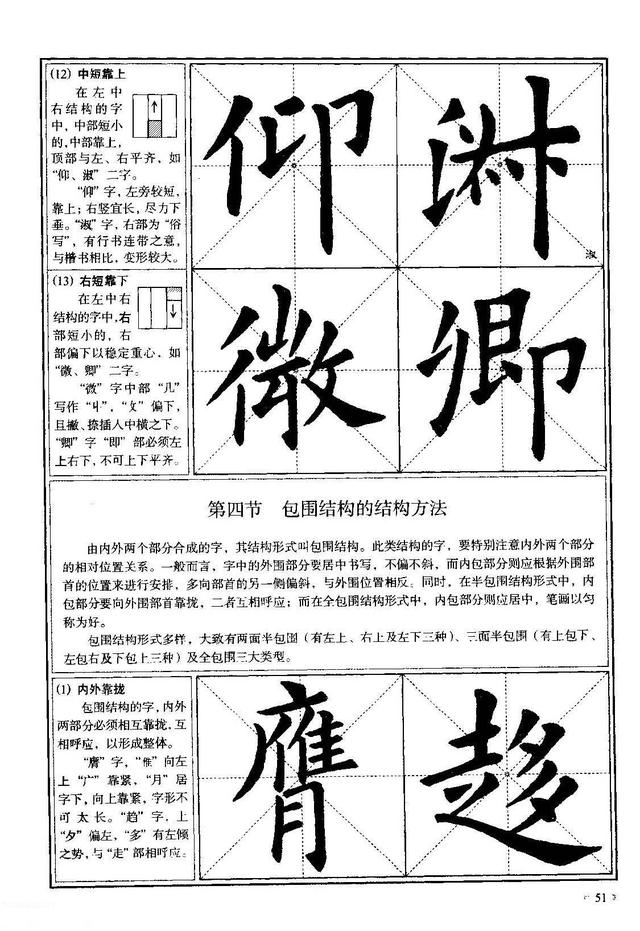 (12) 中短靠上
在左中
右结构的字
中，中部短小
的，中部靠上，
顶部与左、右平齐，如
“仰、淑”二字。
“仰”字，左旁较短，
靠上；右竖宜长，尽力下
垂。“淑”字，右部为“俗
写”，有行书连带之意，
与楷书相比，变形较大。
仰 淑
淑
(13) 右短靠下
在左中右
结构的字中，右
部短小的，右
部偏下以稳定重心，如
“微、卿”二字。
“微”字中部“几”
写作“”，“攵”偏下，
且撇、捺插入中横之下。
“卿”字“即”部必须左
上右下，不可上下平齐。
微 卿
第四节 包围结构的结构方法
由内外两个部分合成的字，其结构形式叫包围结构。此类结构的字，要特别注意内外两个部分
的相对位置关系。一般而言，字中的外围部分要居中书写，不偏不斜，而内包部分则应根据外围部
首的位置来进行安排，多向部首的另一侧偏斜，与外围位置相反。同时，在半包围结构形式中，内
包部分要向外围部首靠拢，二者互相呼应；而在全包围结构形式中，内包部分则应居中，笔画以匀
称为好。
包围结构形式多样，大致有两面半包围（有左上、右上及左下三种）、三面半包围（有上包下、
左包右及下包上三种）及全包围三大类型。
(1) 内外靠拢
包围结构的字，内外
两部分必须相互靠拢，互
相呼应，以形成整体。
“膺”字，“隹”向左
上“广”靠紧，“月”居
字下，向上靠紧，字形不
可太长。“趋”字，上
“夕”偏左，“多”有左倾
之势，与“走”部相呼应。
膺 趍
51